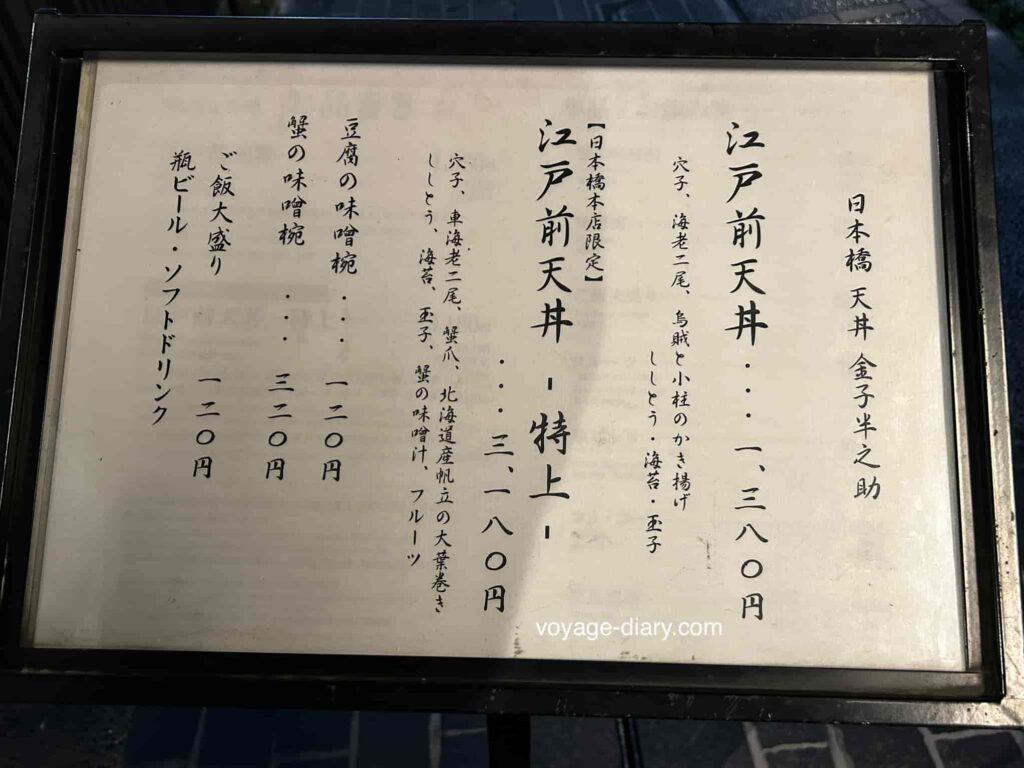 日本橋 天丼 金子半之助
江戸前天丼・・・一、三八〇円
穴子、海老二尾、烏賊と小柱のかき揚げ
ししとう・海苔・玉子
【日本橋本店限定】
江戸前天丼 -特上-
・・・三、一八〇円
穴子、車海老二尾、蟹爪、北海道産帆立の大葉巻き
ししとう、海苔、玉子、蟹の味噌汁、フルーツ
豆腐の味噌椀・・・一二〇円
蟹の味噌椀・・・三二〇円
ご飯大盛り 一二〇円
瓶ビール・ソフトドリンク
voyage-diary.com